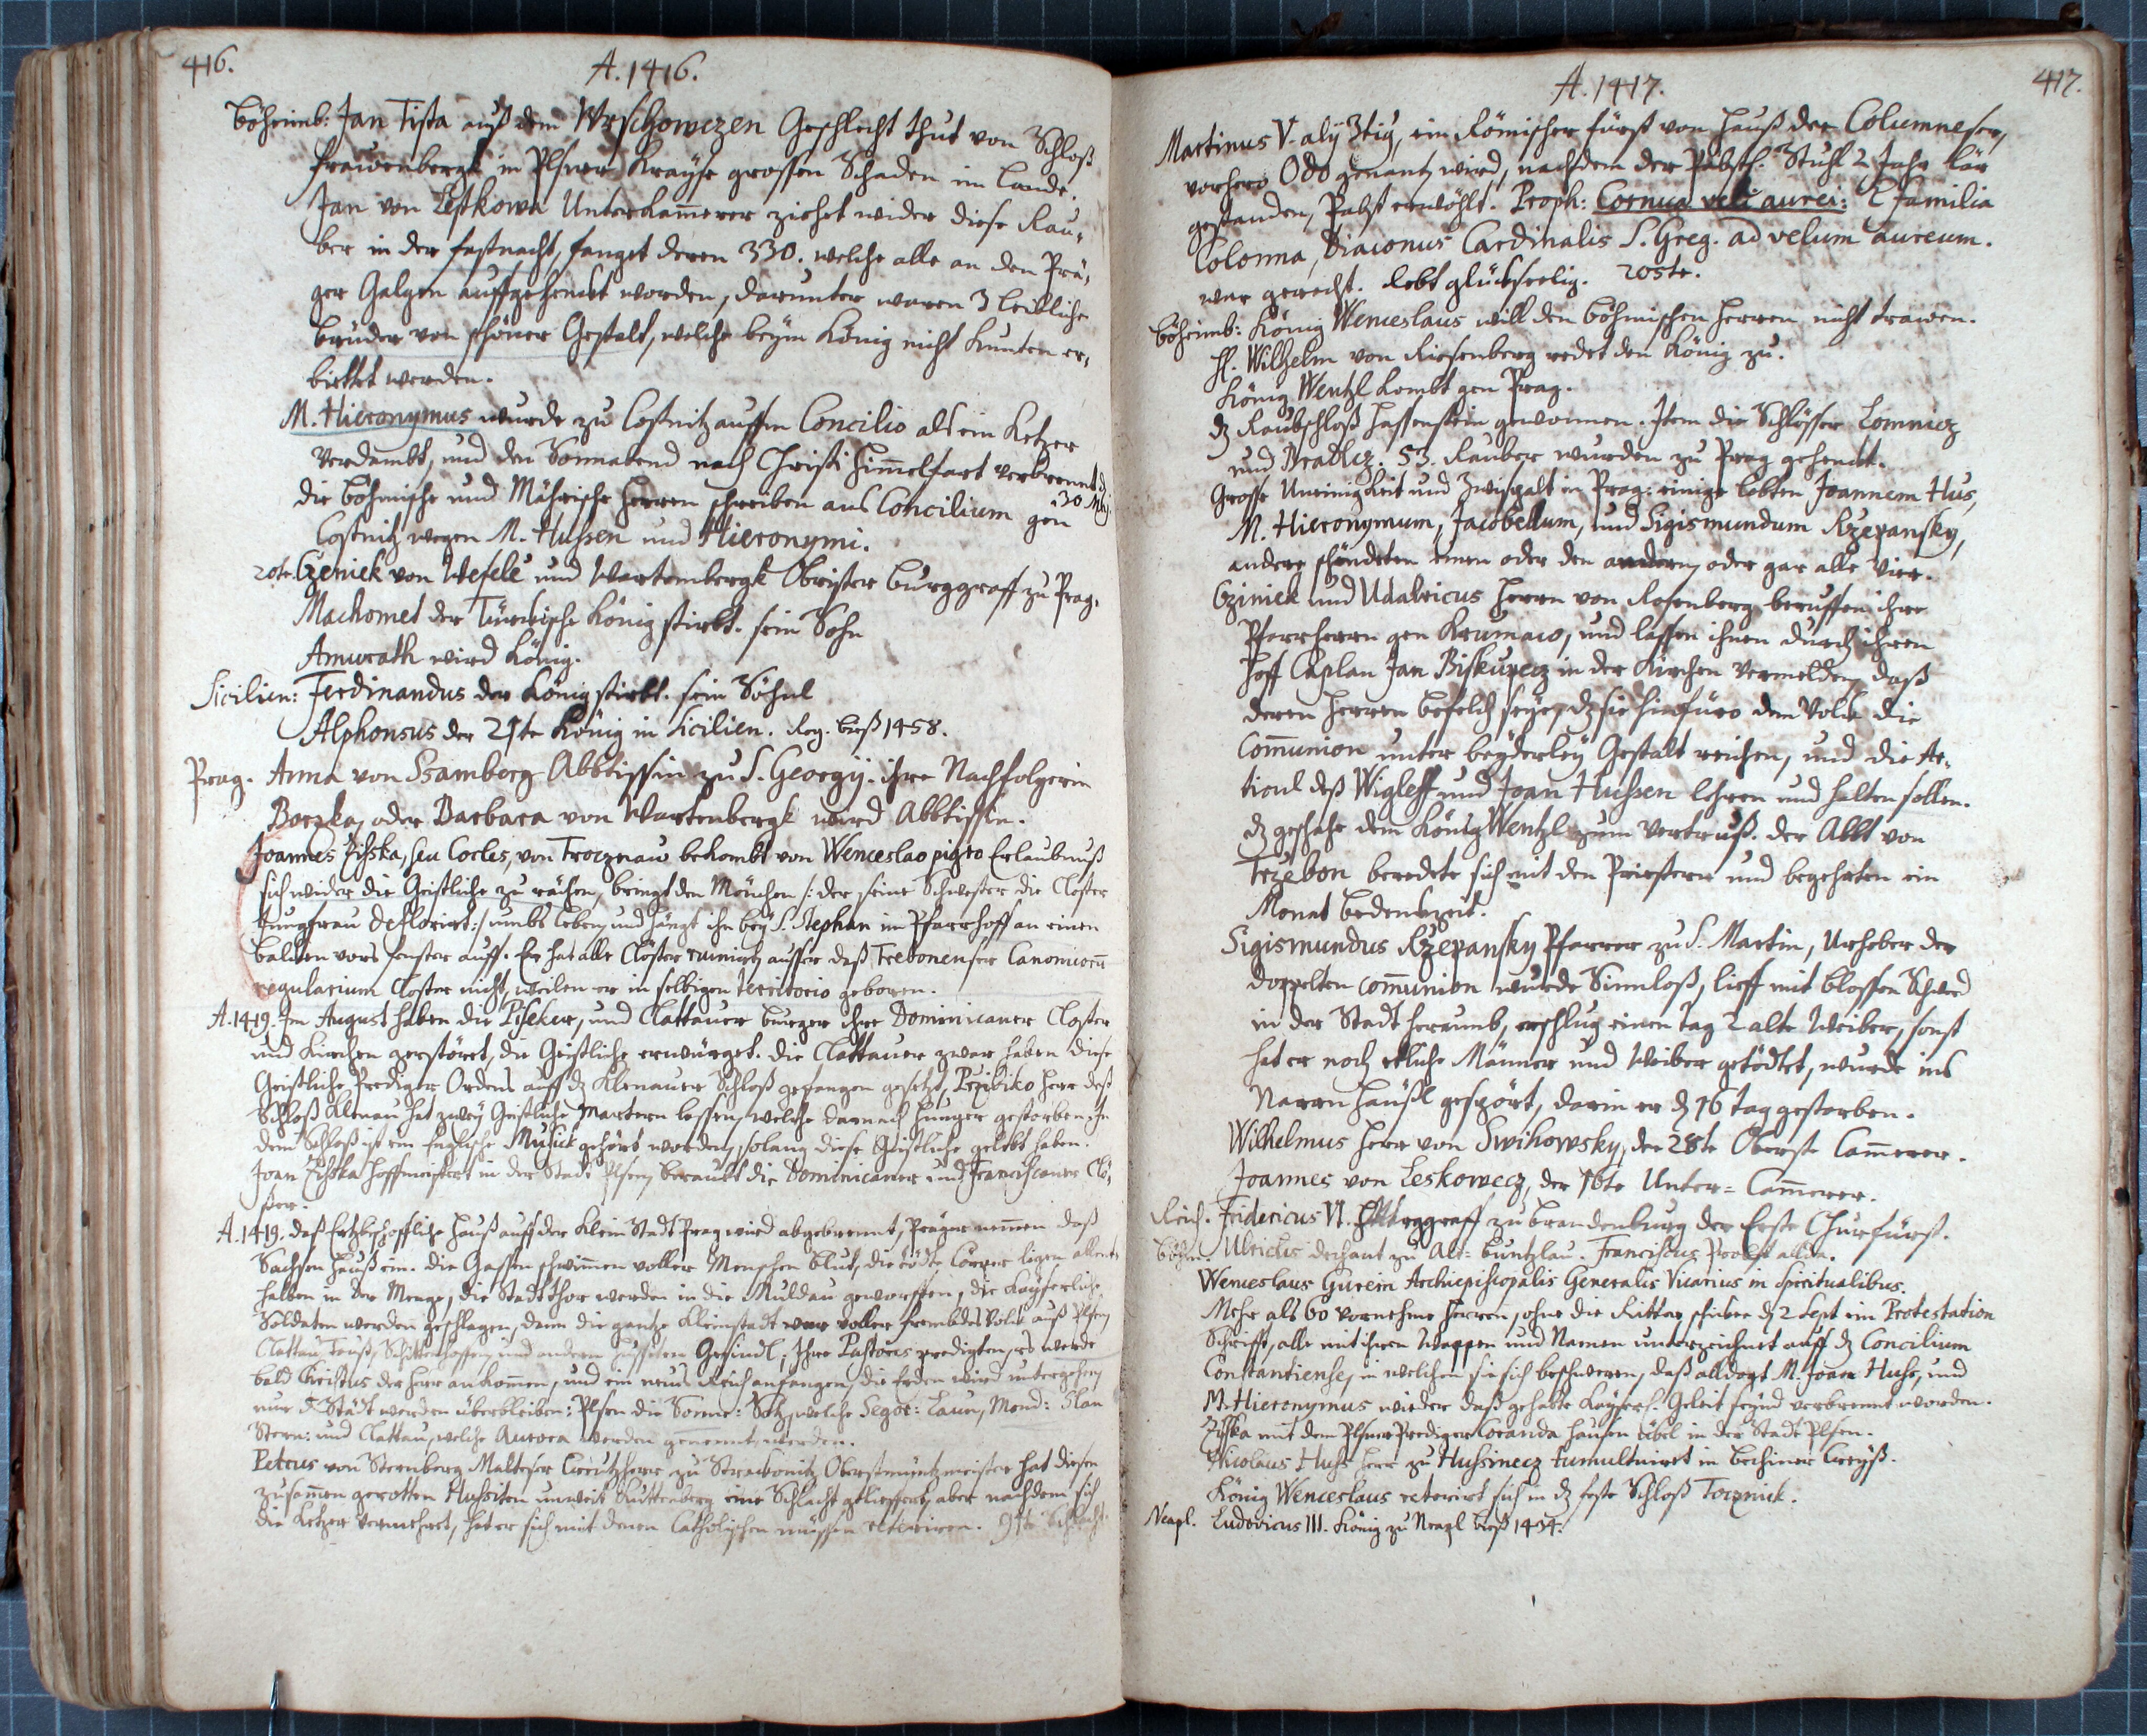 416.
A. 1416.
Böheimb: Jan Tista auß dem Wrschowczen Geschlecht thut von Schloß
Frauenbergk in Plsner Krayse grossen Schaden im Lande.
Jan von Lestkowa Unterkammerer ziehet wider diese Rau-
ber in der fastnacht, fanget deren 330. welche alle an den Pra-
ger Galgen auffgehenckt worden, darunter waren 3 leibliche
brüder von schöner Gestalt, welche beym König nicht kunten er-
bittet werden.
M. Hieronymus wurde zu Costnitz auffm Concilio als ein Ketzer
verdambt, und den Sonnabend nach Christi Himmelfart verbrennt d.
30 Maij
die böhmische und Mährische Herren schreiben ans Concilium gen
Costnitz wegen M. Hussen und Hieronymi.
20te. Czeniek von Wesele und Wartembergk Obrister burggraff zu Prag.
Machomet der Türckische König stirbt. sein Sohn
Amurath wird König.
Sicilien: Ferdinandus der König stirbt. sein Söhnl
Alphonsus der 21te König in Sicilien. Reg. biß 1458.
Prag. Anna von Ssamberg Abbtissin zu S. Georgij. ihre Nachfolgerin
Borzka, oder Barbara von Wartenbergk wird Abbtissin.
Joannes Zischka, seu Cocles, von Trocznau bekombt von Wenceslao pigro Erlaubnuß
sich wider die Geistliche zu rächen, bringt den Mönchen /: der seine Schwester die Closter
Jungfrau deflorirt :/ umbs leben, und hängt ihn bey S. Stephan im Pfarrhoff an einen
balcken vors fenster auff. Er hat alle Clöster ruinirt, ausser daß Trebonenser Canonicorum
regularium Closter nicht, weilen er in selbigen territorio geboren.
A. 1419. Im August haben die Piseker, und Clattauer burger ihre Dominicaner Closter
und Kirchen zerstöret, die Geistliche erwürget. die Clattauer zwar haben diese
Geistliche Prediger Ordens auff dz Klenauer Schloß gefangen gesetzt, Przibiko Herr deß
Schloß Klenau hat zwey Geistliche martern lassen, welche darnach Hunger gestorben. In
dem Schloß ist ein Englische Musick gehört worden, solang diese Geistliche gelebt haben.
Joan Zischka Hoffmeistert in der Stadt Plsen, beraubt die Dominicaner und Franciscaner Clö-
ster.
A. 1419. daß Ertzbischoffliche Hauß auff der Klein Stadt Prag wird abgebrennt, Prager nemmen daß
Sachsen Hauß ein. die Gassen schwimmen voller Menschen blut, die tödte Cörper ligen allent-
halben in der Menge, die Stadtthor werden in die Muldau geworffen, die Kayserliche
Soldaten werden geschlagen, dann die gantze Kleinstadt war voller frembdes Volck auß Plsen,
Clattau, Tauß, Schüttenhoffen, und andern Gesindl, ihre Pastores predigten, es werde
bald Christus der Herr ankommen, und ein neues Reich anfangen, die Erden wird untergehen,
nur 5 Städt werden überbleiben: Plsen die Sonne: Satz, welche Segor: Laun, Mond: Slan
Stern: und Clattau, welche Aurora werden genennt werden.
Petrus von Sternberg Malteser Creutzherr zu Strackonitz Oberstmüntzmeister hat diesen
zusammen gerotten Hussiten unweit Kuttenberg eine Schlacht geliefert, aber nachdem sich
die Ketzer vermehret, hat er sich mit denen Catholischen müssen reteriren. 91te Schlacht
417.
A. 1417.
Martinus V. alij 3tig, ein Römischer fürst von Hauß der Columneser,
vorhero Odo genant, wird, nachdem der Päbstl. Stuhl 2 Jahr lär
gestanden, Pabst erwöhlt. Proph: Cornua veli aurei: E familia
Colonna, Diaconus Cardinalis S. Greg. ad velum aureum.
war gerecht. lebt glückseelig. 205te.
Böheimb: König Wenceslaus will den böhmischen Herren nicht trawen.
H. Wilhelm von Riesenberg redet den König zu.
König Wentzl kombt gen Prag.
dz Raubschloß Hassenstein gewonnen. Item die Schlösser Lomnicz
und Bradlcz. 53. Rauber wurden zu Prag gehenckt.
Grosse Uneinigkeit und Zwispalt in Prag: einige lobten Joannem Hus,
M. Hieronymum, Jacobellum, und Sigismundum Rzepansky,
andere schändeten einen oder den andern, oder gar alle vier.
Cziniek und Udalricus Herrn von Rosenberg beruffen ihre
Pfarrherrn gen Krumaw, und lassen ihnen durch ihren
Hoff Caplan Jan Biskupecz in der Kirchen vermelden, daß
deren Herren befelch seye, dz sie hinfüro dem Volck die
Communion unter beyderley Gestalt reichen, und die Ar-
ticul deß Wigleff und Joan Hussen lehren und halten sollen.
dz geschahe dem König Wentzl zum Vertruß. der Abbt von
Trzebon beredete sich mit den Priestern und begehrten ein
Monat bedenckzeit.
Sigismundus Rzepansky Pfarrer zu S. Martin, Urheber der
doppelten Communion wurde Sinnloß, lieff mit blossen Schwerd
in der Stadt herumb, erschlug einen tag 2 alte Weiber, sonst
hat er noch etliche Männer und Weiber getödtet, wurde ins
Narrn häußl gespört, darin er den 16 tag gestorben.
Wilhelmus Herr von Swihowsky, der 28te Oberste Cammerer.
Joannes von Leskowecz, der 16te Unter-Cammerer.
Reich. Fridericus VI. burggraff zu Brandenburg der Erste Churfürst.
Böhm. Ulricus dechant zu Alt-buntzlau. Franciscus Probst allda.
Wenceslaus Gurein Archiepiscopalis Generalis Vicarius in Spiritualibus.
Mehr als 60 vornehme Herren, ohne die Ritter schicken den 2 Sept ein Protestation
Schrifft, alle mit ihren Wappen und Namen unterzeichnet auff dz Concilium
Constantiense, in welchen sie sich beschweren, daß alldort M. Joan Huss, und
M. Hieronymus wieder daß gehabte Kayserl. Geleit seynd verbrennt worden.
Zischka mit dem Plsner Prediger Coranda hausen übel in der Stadt Plsen.
Nicolaus Huss Herr zu Hussinecz tumultuirt in Bechiner Creyß.
König Wenceslaus reterirt sich in dz feste Schloß Tocznick.
Neapl. Ludovicus III. König zu Neapl biß 1434.